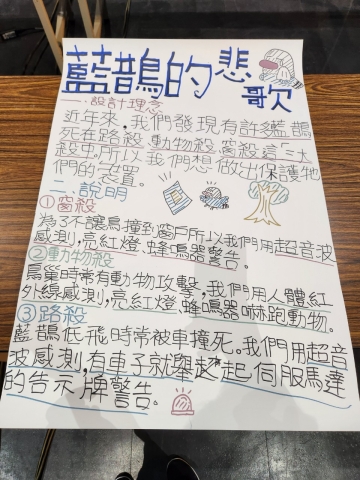 藍鵲的悲歌
一、設計理念
近年來,我們發現有許多藍鵲
死在路殺、動物殺、窗殺這三大
殺中。所以我們想做出保護牠
們的裝置。
二、說明
①窗殺
為了不讓鳥撞到窗戶所以我們用超音波
感測,亮紅燈、蜂鳴器警告。
②動物殺
鳥巢時常有動物攻擊,我們用人體紅
外線感測,亮紅燈、蜂鳴器嚇跑動物。
③路殺
藍鵲低飛時常被車撞死。我們用超音
波感測,有車子就舉起起伺服馬達
的告示牌警告。